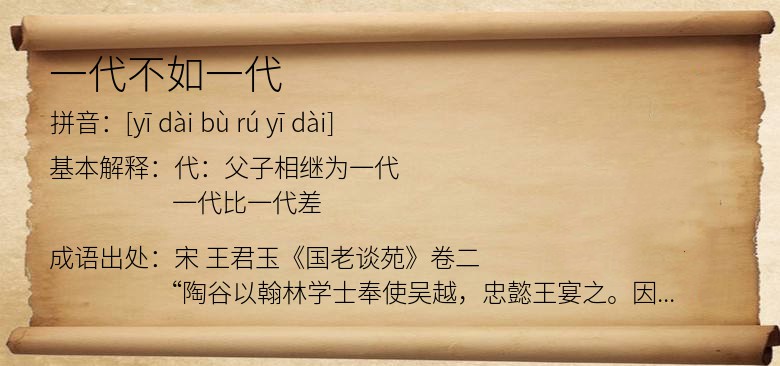 一代不如一代
拼音：[yī dài bù rú yī dài]
基本解释：代：父子相继为一代
一代比一代差
成语出处：宋 王君玉《国老谈苑》卷二
“陶谷以翰林学士奉使吴越，忠懿王宴之。因...